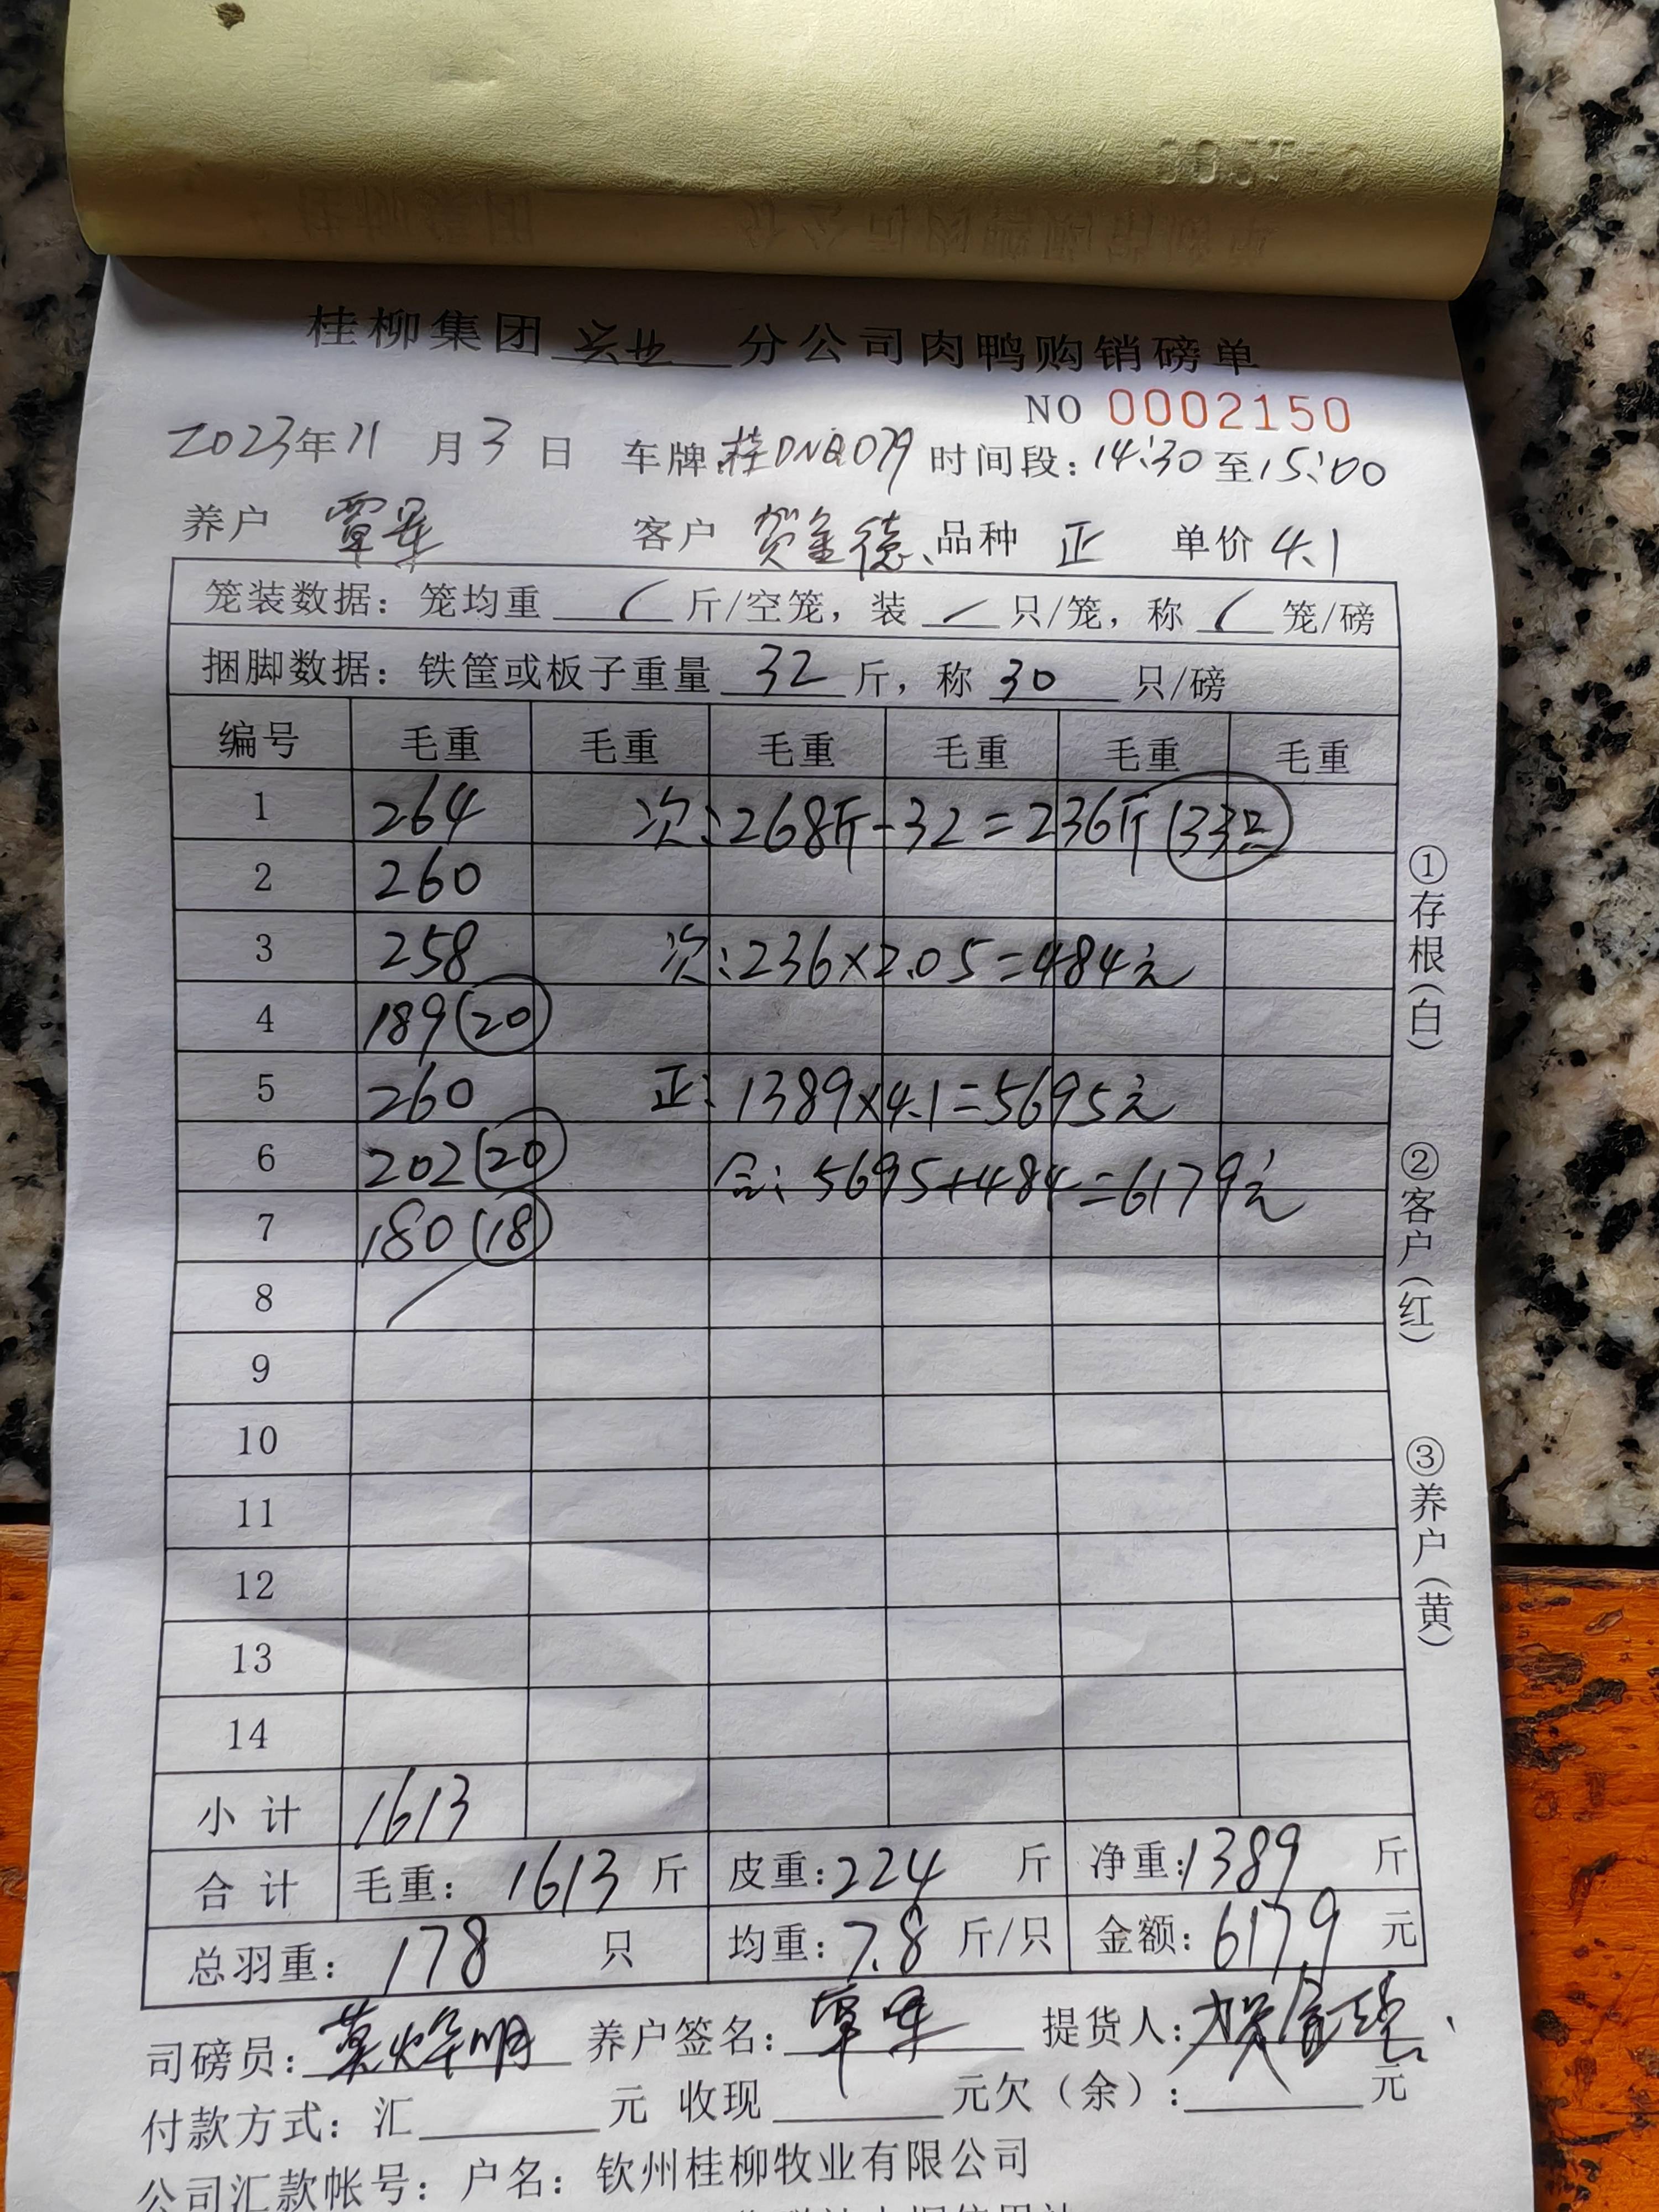 桂柳集团 兴业 分公司肉鸭购销磅单
NO 0002150
2023年11月3日 车牌:桂DNQ079 时间段:14:30至15:00
养户 覃军 客户 贺金德 品种 正 单价 4.1
笼装数据：笼均重 / 斤/空笼，装 / 只/笼，称 / 笼/磅
捆脚数据：铁筐或板子重量 32 斤，称 30 只/磅
编号 毛重 毛重 毛重 毛重 毛重 毛重
1 264 次:268斤-32=236斤(33只)
2 260
3 258 次:236×2.05=484元
4 189(20)
5 260 正:1389×4.1=5695元
6 202(20) 合:5695+484=6179元
7 180(18)
8
9
10
11
12
13
14
小计 1613
合计 毛重：1613斤 皮重:224斤 净重:1389斤
总羽重：178只 均重:7.8斤/只 金额:6179元
司磅员: 养户签名:覃军 提货人:贺金德
付款方式：汇 元 收现 元欠（余）: 元
公司汇款帐号：户名：钦州桂柳牧业有限公司
①存根（白）
②客户（红）
③养户（黄）